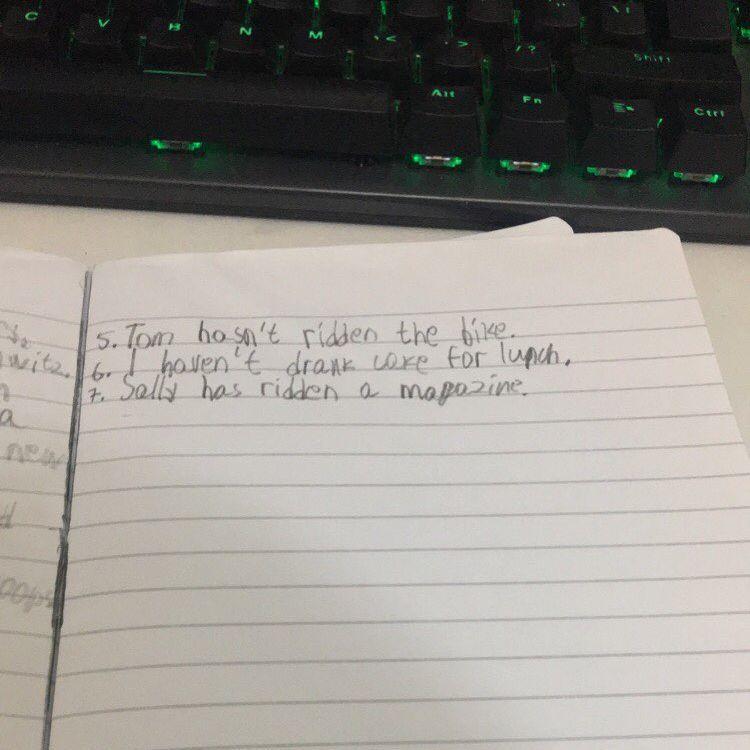 C V B N M < > / ? Shift
Alt Fn Ctrl
5. Tom hasn't ridden the bike.
6. I haven't drank coke for lunch.
7. Sally has ridden a magazine.
witz.
a
new
oops